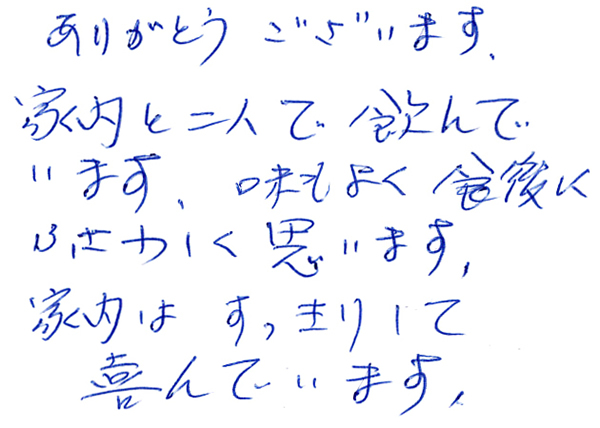 ありがとう ございます。
家内と二人で 飲んで
います。味もよく 食後に
ふさわしく 思います。
家内は すっきりして
喜んでいます。